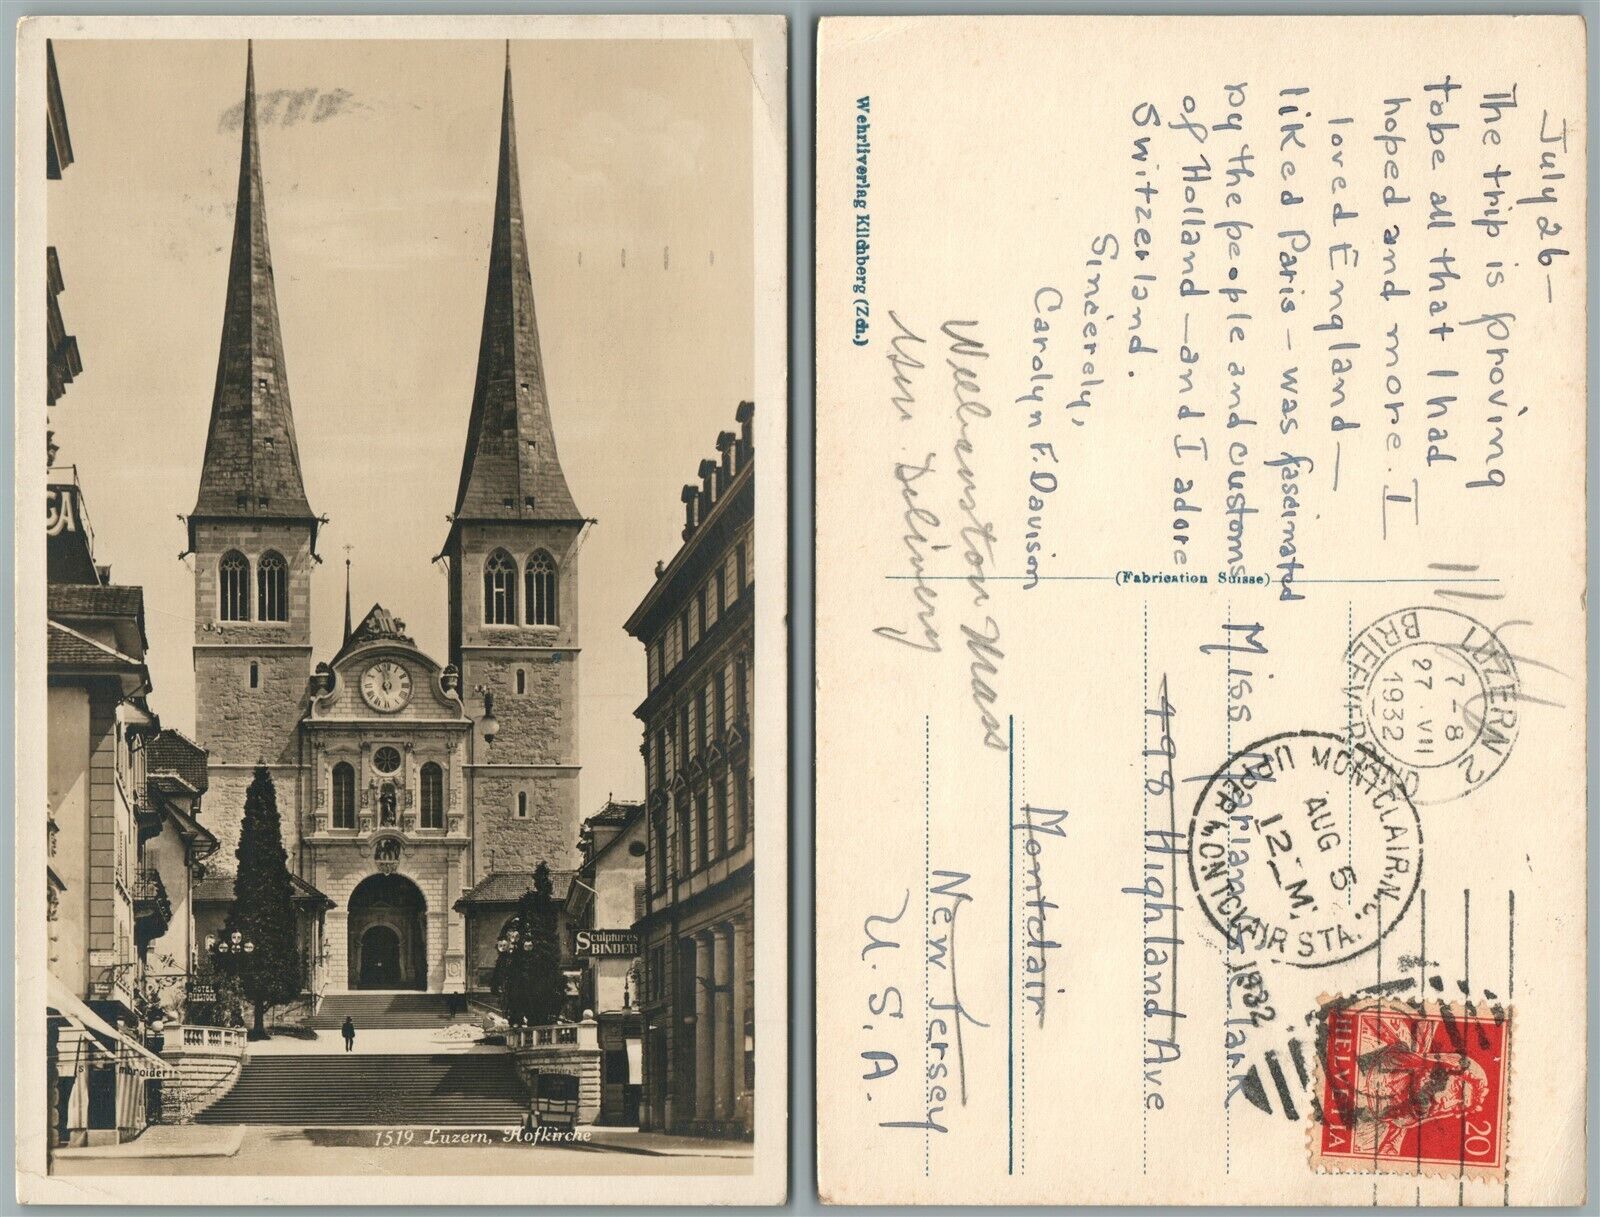 GA
HOTEL
REBSTOCK
Sculptures
BINDER
1519 Luzern, Hofkirche
July 26—
The trip is proving
to be all that I had
hoped and more. I
loved England—
liked Paris – was fascinated
by the people and customs
of Holland – and I adore
Switzerland.
Sincerely,
Carolyn F. Davison
Williamston Mass
Gen. Delivery
Wehrliverlag Kilchberg (Zch.)
(Fabrication Suisse)
Miss Marians Clark
498 Highland Ave
Montclair
New Jersey
U. S. A.
LUZERN 2
7-8
27.VII
1932
BRIEFVERSAND
UPPER MONTCLAIR STA.
MONTCLAIR, N.J.
AUG 5
12-M.
1932
HELVETIA
20